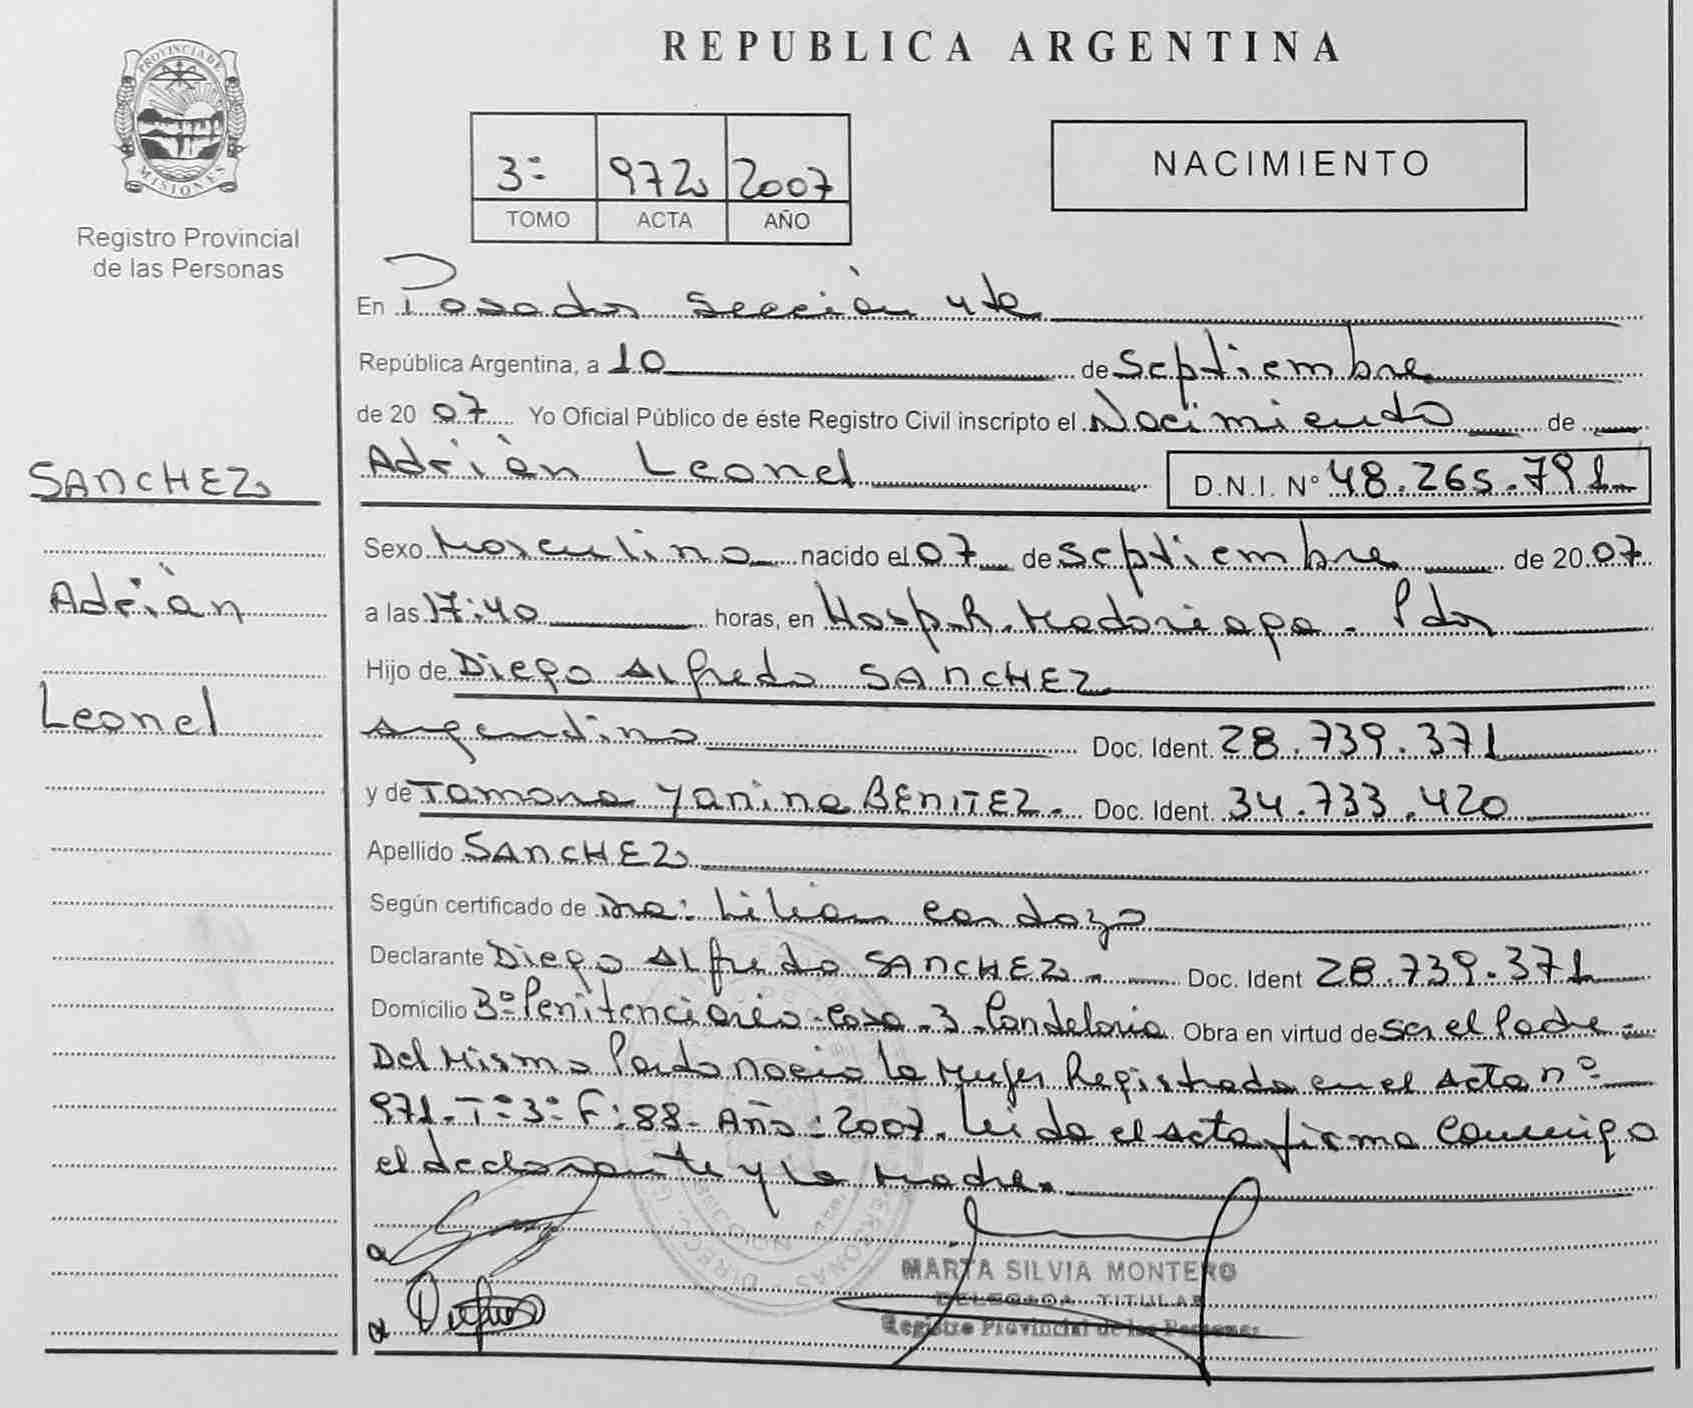 PROVINCIA DE
MISIONES
Registro Provincial
de las Personas
SANCHEZ
Adrián
Leonel
REPUBLICA ARGENTINA
3º 972 2007
TOMO ACTA AÑO
NACIMIENTO
En Posadas Sección 4ta
República Argentina, a 10 de Septiembre
de 2007 Yo Oficial Público de éste Registro Civil inscripto el Nacimiento de
Adrián Leonel D.N.I. Nº 48.265.791
Sexo Masculino nacido el 07 de Septiembre de 2007
a las 17:40 horas, en Hosp. R. Madariaga - Pdas
Hijo de Diego Alfredo SANCHEZ
Argentino Doc. Ident. 28.739.371
y de Tamara Yanina BENITEZ. Doc. Ident. 34.733.420
Apellido SANCHEZ
Según certificado de Dra: Lilian Cardozo
Declarante Diego Alfredo SANCHEZ.- Doc. Ident 28.739.371
Domicilio Bº Penitenciario - Casa - 3 - Candelaria Obra en virtud de ser el Padre -
Del Mismo Parto nació la Mujer Registrada en el Acta nº
971 - Tº 3º F: 88 - Año: 2007. Leída el acta firma conmigo
el declarante y la Madre.
MARTA SILVIA MONTERO
DELEGADA TITULAR
Registro Provincial de las Personas